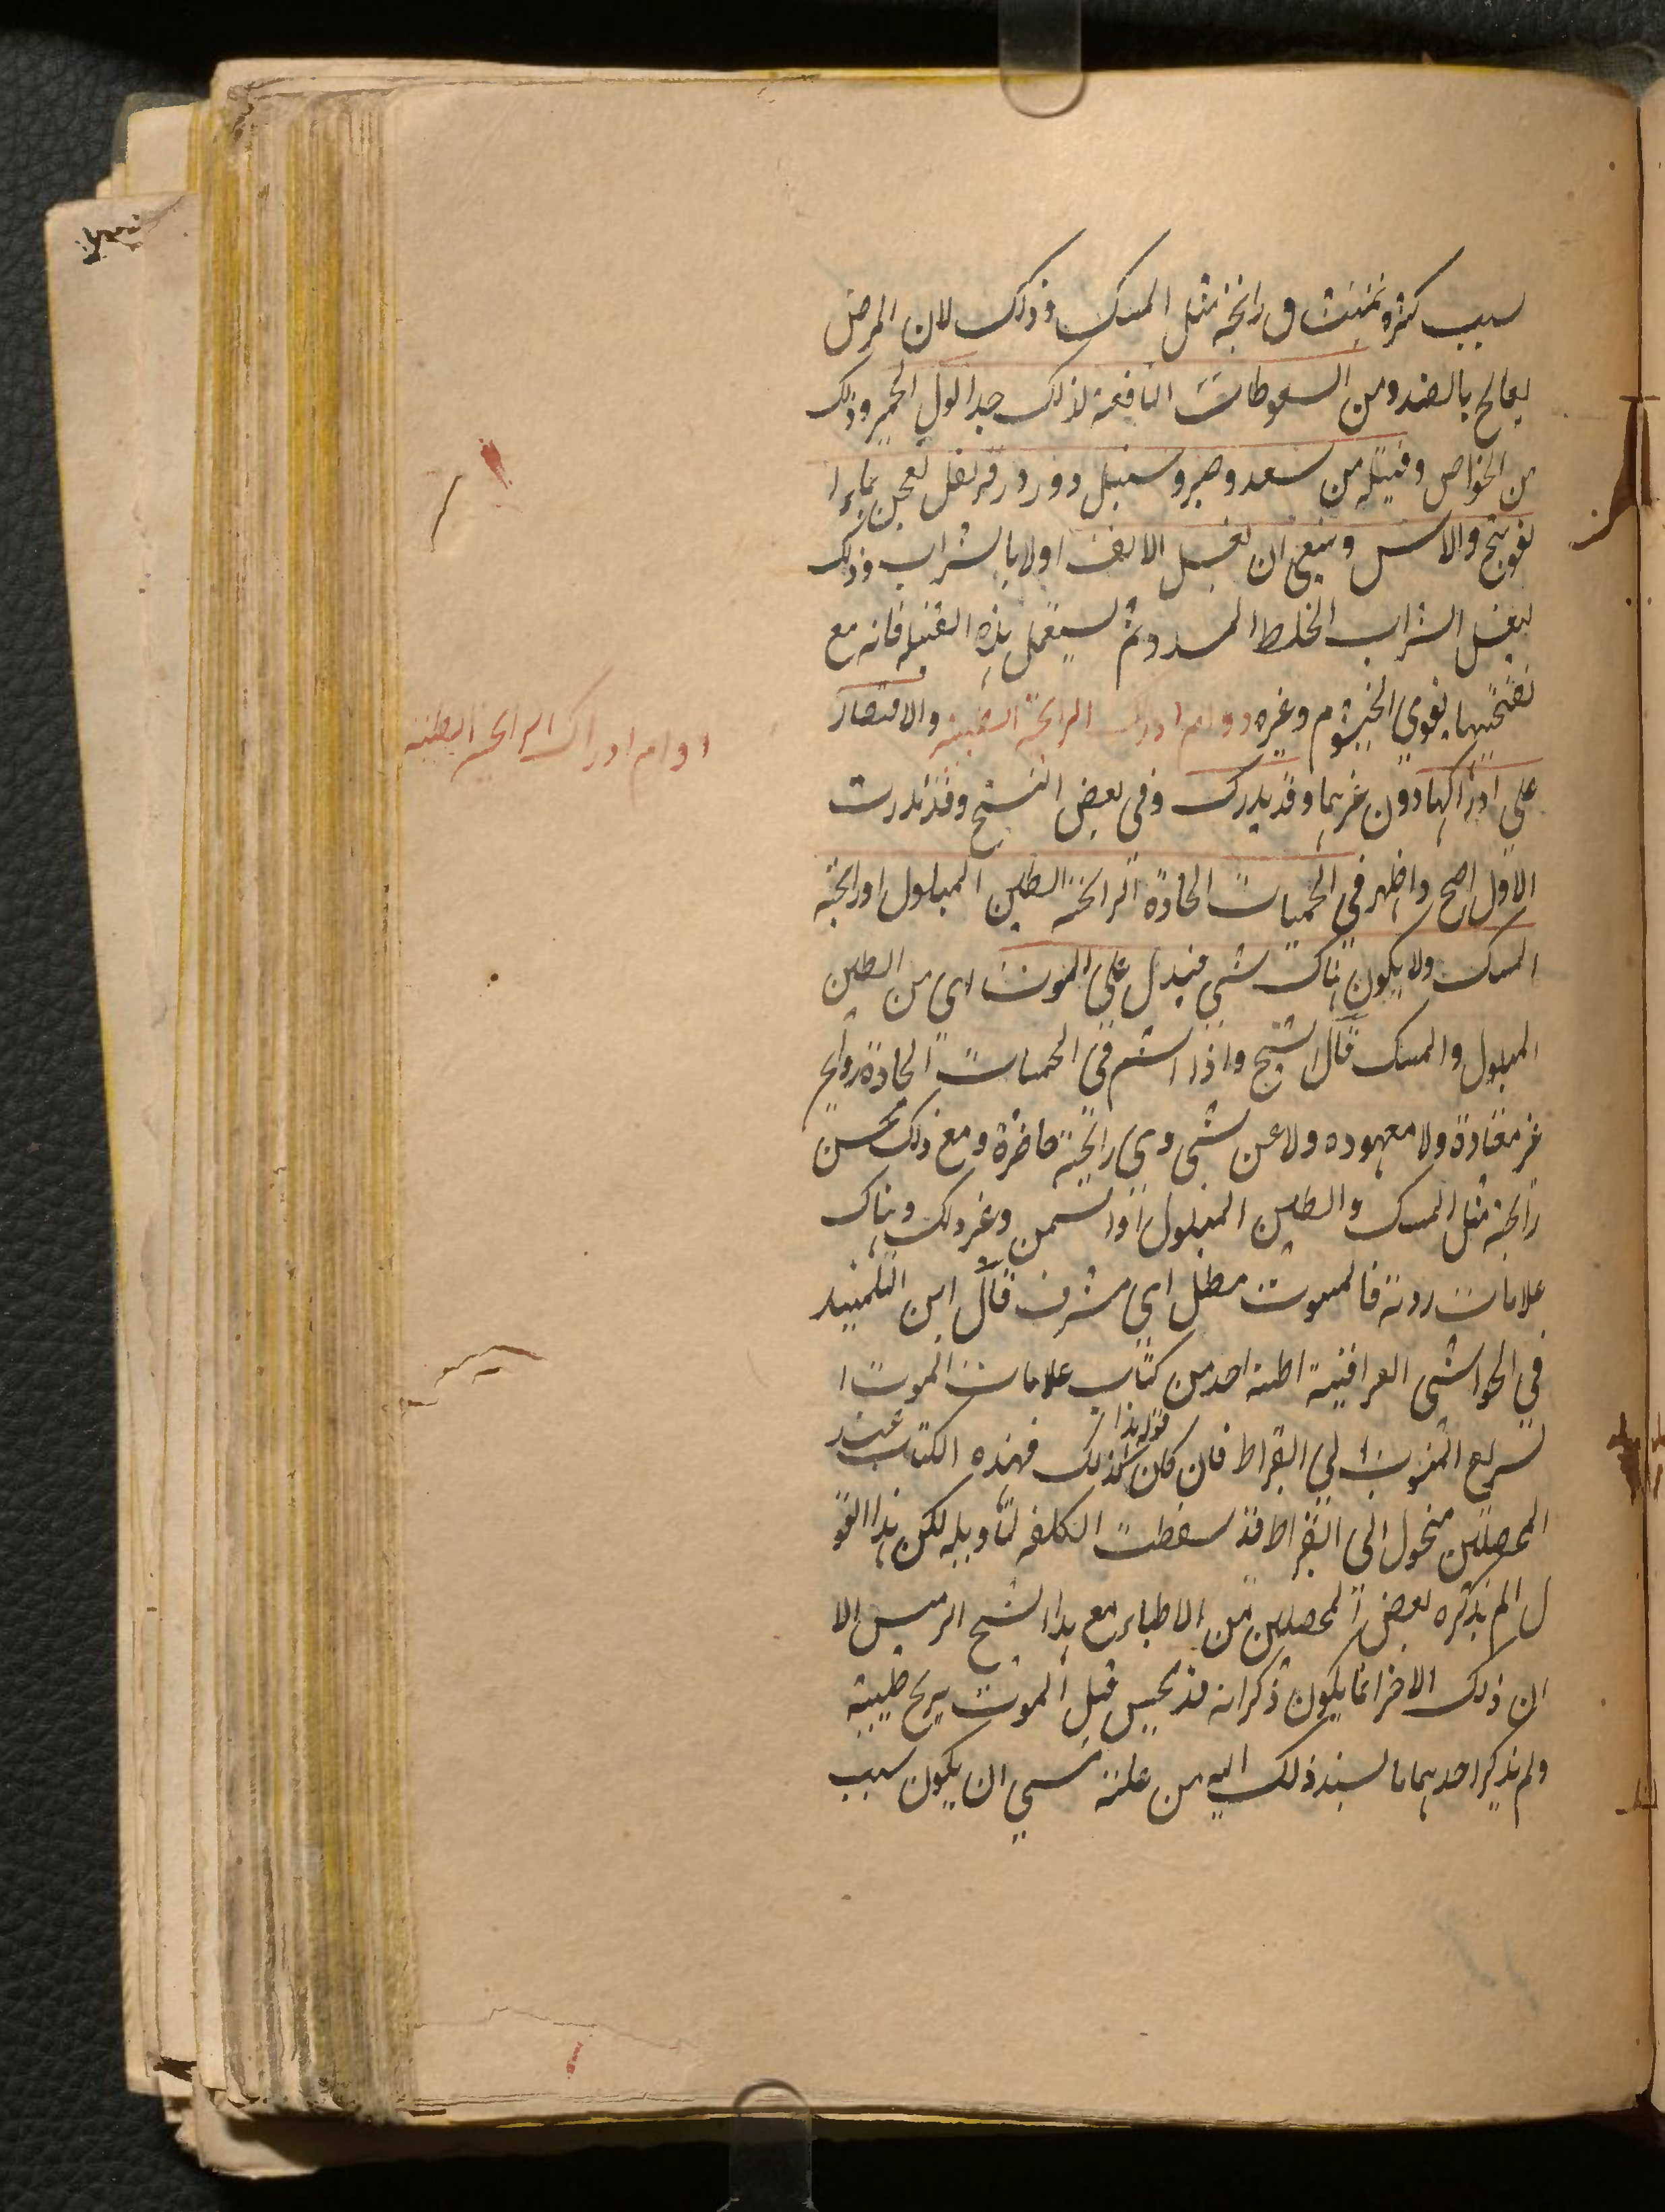 سبب كثرو تمنیت ق رائحة مثل المسك وذلك لان المرض
يعالج بالضد ومن السعوطات النافعة لذلك جدا بول الحمير وذلك
من الخواص وفتيله من سعد وصبر وسنبل وورد وقرنفل تعجن بماء ا
لفوتنج والاس وينبغي ان يغسل الانف اولا بالشراب وذلك
ليغسل الشراب الخلط المسدد ثم يستعمل هذه الفتيله فانه مع
تفتحيتها يقوي الخيشوم وغيره دوام ادراك الرائحة الطيبة والاقتصار
على ادراكها دون غيرها وقد يدرك وفي بعض النسخ وقد ندرت
الاول اصح واظهر في الحميات الحادة الرائحة الطين المبلول او رائحة
المسك ولا يكون هناك شي فيدل على الموت اي من الطين
المبلول والمسك قال الشيخ واذا اشتم في الحميات الحادة روايح
غير معتادة ولا معهوده ولا عن شي ذي رائحة حاضرة ومع ذلك يحس
رائحة مثل المسك والطين المبلول او السمن وغير ذلك وهناك
علامات ردية فالموت مطل اي مشرف قال ابن التلميذ
في الحواشي العراقية اظنه اخذ من كتاب علامات الموت ا
لسريع المنسوب الى ابقراط فان كان قوله هذا كذلك فهذه الكتاب عند
المحصلين منحول الى ابقراط فقد سقطت الكلفه لتأويله لكن هذا القو
ل الم يذكره بعض المحصلين من الاطباء مع هذا الشيخ الرئيس الا
ان ذلك الاخر انما يكون ذكر انه قد يحس قبل الموت بريح طيبة
ولم يذكر احدهما ما يسند ذلك اليه من علة عسى ان يكون سبب
دوام ادراك الرائحة الطيبة